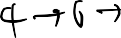 4 → 6 →